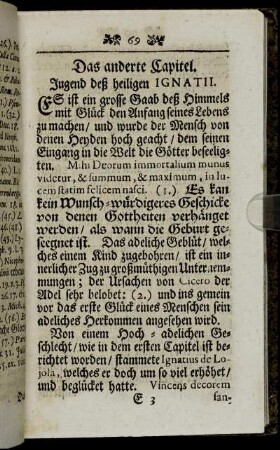 69
Das anderte Capitel.
Jugend deß heiligen IGNATII.
ES ist ein grosse Gaab deß Himmels
mit Glück den Anfang seines Lebens
zu machen / und wurde der Mensch von
denen Heyden hoch geacht / dem seinen
Eingang in die Welt die Götter beseelig-
ten. Mihi Deorum immortalium munus
videtur, & summum, & maximum, in lu-
cem statim felicem nasci. (1.) Es kan
kein Wunsch-würdigeres Geschicke
von denen Gottheiten verhänget
werden / als wann die Geburt ge-
seegnet ist. Das adeliche Geblüt / wel-
ches einem Kind zugebohren / ist ein in-
nerlicher Zug zu großmüthigen Unterneh-
mungen; der Ursachen von Cicero der
Adel sehr belobet: (2.) und ins gemein
vor das erste Glück eines Menschen sein
adeliches Herkommen angesehen wird.
Von einem Hoch-adelichen Ge-
schlecht / wie in dem ersten Capitel ist be-
richtet worden / stammete Ignatius de Lo-
jola, welches er doch um so viel erhöhet /
und beglücket hatte. Vincens decorem
E 3 san-